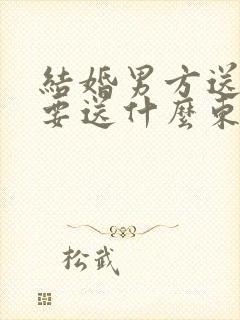 結婚男方送
要送什麼東
松武